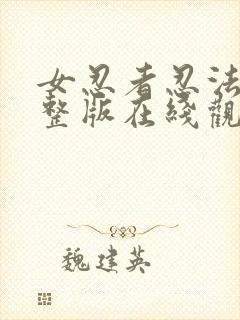 女忍者忍法
整版在綫觀
魏建英